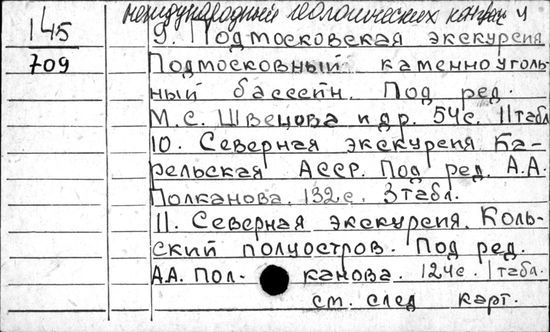 международный геологических конгр. 4
145
709
9. Подмосковская экскурсия
Подмосковный каменноуголь-
ный бассейн. Под ред.
М.С. Швецова и др. 54с. 11табл
10. Северная экскурсия Ка-
рельская АССР. Под ред. А.А.
Полканова. 132с. 3табл.
11. Северная экскурсия. Коль-
ский полуостров. Под ред.
А.А. Пол- канова. 124с. 1табл.
см. след карт.